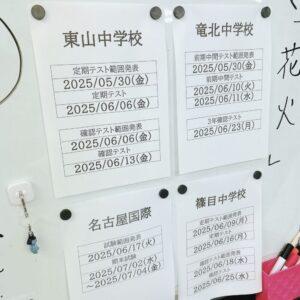 東山中学校
定期テスト範囲発表
2025/05/30(金)
定期テスト
2025/06/06(金)
確認テスト範囲発表
2025/06/06(金)
確認テスト
2025/06/13(金)
竜北中学校
前期中間テスト範囲発表
2025/05/30(金)
前期中間テスト
2025/06/10(火)
2025/06/11(水)
3年確認テスト
2025/06/23(月)
名古屋国際
試験範囲発表
2025/06/17(火)
期末試験
2025/07/02(水)
～2025/07/04(金)
篠目中学校
定期テスト範囲発表
2025/06/09(月)
定期テスト
2025/06/16(月)
確認テスト範囲発表
2025/06/18(水)
確認テスト
2025/06/25(水)
花火」